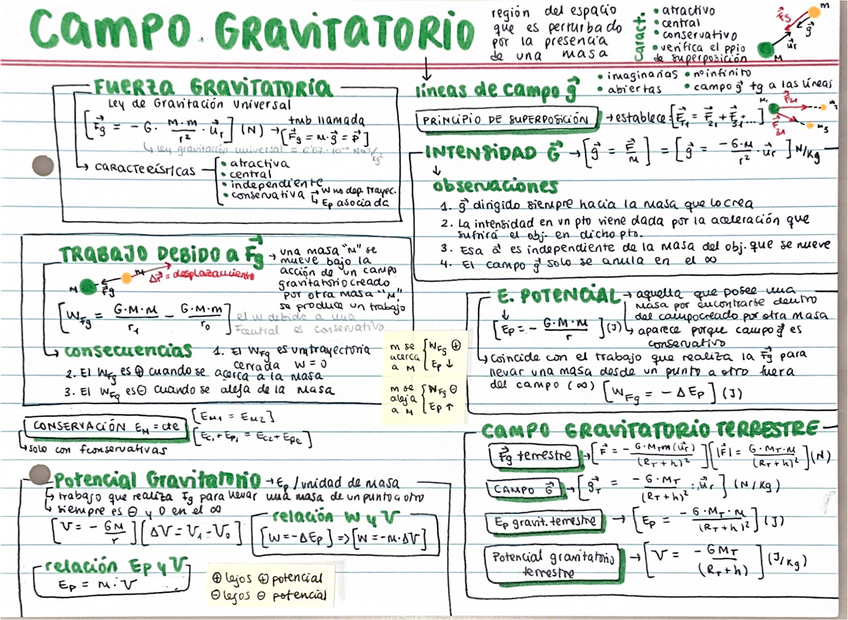 CAMPO GRAVITATORIO
región del espacio
que es perturbado
por la presencia
de una masa
Caract.
• atractivo
• central
• conservativo
• verifica el ppio
de superposición
F⃗g
g⃗
u⃗r
m
M
FUERZA GRAVITATORIA
Ley de Gravitación Universal
[F⃗g = -G · M·m/r² · u⃗r] (N) → tmb llamada [F⃗g = m·g⃗ = P⃗]
→ CARACTERÍSTICAS
• atractiva
• central
• independiente
• conservativa → W no dep. trayec.
↳ Ep asociada
líneas de campo g⃗
• imaginarias
• abiertas
• n° infinito
• campo g⃗ tg a las líneas
PRINCIPIO DE SUPERPOSICIÓN → establece
INTENSIDAD G⃗ → [g⃗ = F⃗/m] = [g⃗ = -G·M/r² · u⃗r] N/kg
observaciones
1. g⃗ dirigido siempre hacia la masa que lo crea
2. La intensidad en un pto viene dada por la aceleración que
sufrirá el obj. en dicho pto.
3. Esa a⃗ es independiente de la masa del obj. que se mueve
4. El campo g⃗ solo se anula en el ∞
TRABAJO DEBIDO A F⃗g → una masa "m" se
mueve bajo la
acción de un campo
gravitatorio creado
por otra masa "M".
se produce un trabajo
M
m
F⃗g
Δr⃗ = desplazamiento
[WFg = G·M·m/r₁ - G·M·m/r₀]
el W debido a una
F central es conservativo
consecuencias
1. El WFg es un trayectoria
cerrada W = 0
2. El WFg es ⊕ cuando se acerca a la masa
3. El WFg es ⊖ cuando se aleja de la masa
m se
acerca
a M
{ WFg ⊕
Ep ↓
m se
aleja
a M
{ WFg ⊖
Ep ↑
E. POTENCIAL → aquella que posee una
masa por encontrarse dentro
del campo creado por otra masa
→ aparece porque campo g⃗ es
conservativo
[Ep = - G·M·m/r] (J)
↳ coincide con el trabajo que realiza la F⃗g para
llevar una masa desde un punto a otro fuera
del campo (∞) [WFg = - ΔEp] (J)
CONSERVACIÓN EM = cte
[EM1 = EM2]
[Ec1 + Ep1 = Ec2 + Ep2]
↳ solo con F conservativas
Potencial Gravitatorio → Ep / unidad de masa
↳ trabajo que realiza Fg para llevar una masa de un punto a otro
↳ siempre es ⊖ y 0 en el ∞
[V = - GM/r] [ΔV = V₁ - V₀]
relación W y V
[W = -ΔEp] => [W = -m·ΔV]
relación Ep y V
Ep = m·V
⊕ lejos ⊕ potencial
⊖ lejos ⊖ potencial
CAMPO GRAVITATORIO TERRESTRE
F⃗g terrestre → [F⃗ = -G·MT·m(u⃗r)/(RT+h)²] [|F⃗| = G·MT·m/(RT+h)²] (N)
CAMPO G⃗ → [g⃗T = -G·MT/(RT+h)² · u⃗r] (N/kg)
Ep gravit. terrestre → [Ep = -G·MT·m/(RT+h)²] (J)
Potencial gravitatorio
terrestre
→ [V = -GMT/(RT+h)] (J/kg)